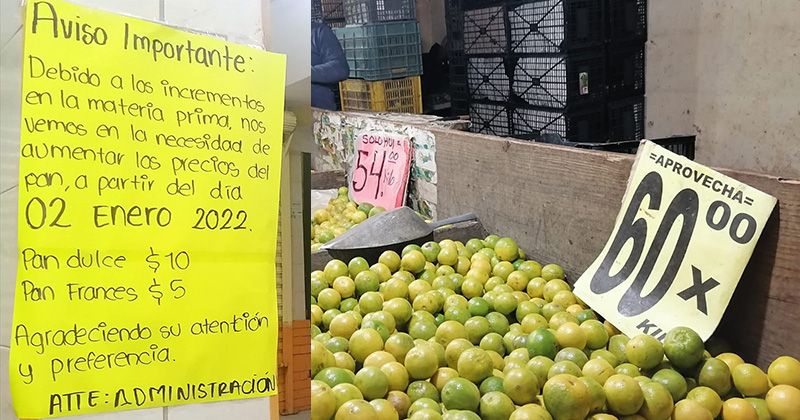 Aviso Importante:
Debido a los incrementos
en la materia prima, nos
vemos en la necesidad de
aumentar los precios del
pan, a partir del día
02 Enero 2022.
Pan dulce $10
Pan Frances $5
Agradeciendo su atención
y preferencia.
ATTE: ADMINISTRACIÓN
SOLO HOY
54.00
kilo
=APROVECHA=
60 00 x
KILO